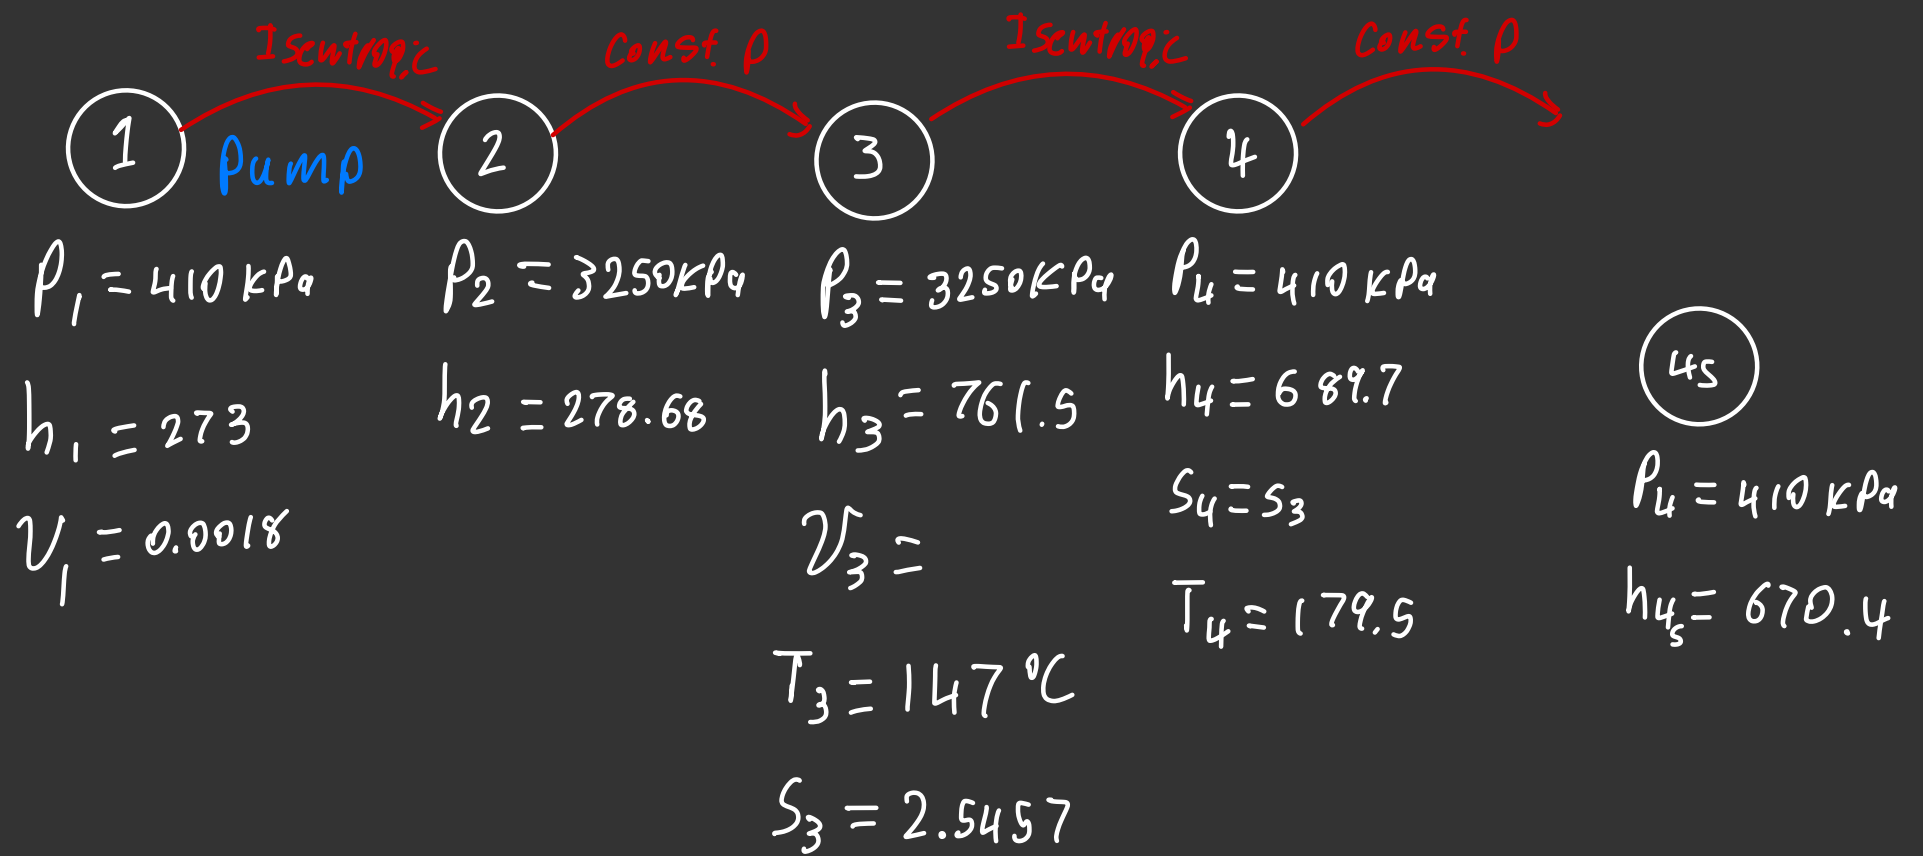 Isentropic
Const. P
Isentropic
Const. P
1
Pump
2
3
4
P₁ = 410 kPa
h₁ = 273
V₁ = 0.0018
P₂ = 3250kPa
h₂ = 278.68
P₃ = 3250kPa
h₃ = 761.5
V₃ =
T₃ = 147 °C
S₃ = 2.5457
P₄ = 410 kPa
h₄ = 689.7
S₄ = S₃
T₄ = 179.5
4s
P₄ = 410 kPa
h₄s = 670.4